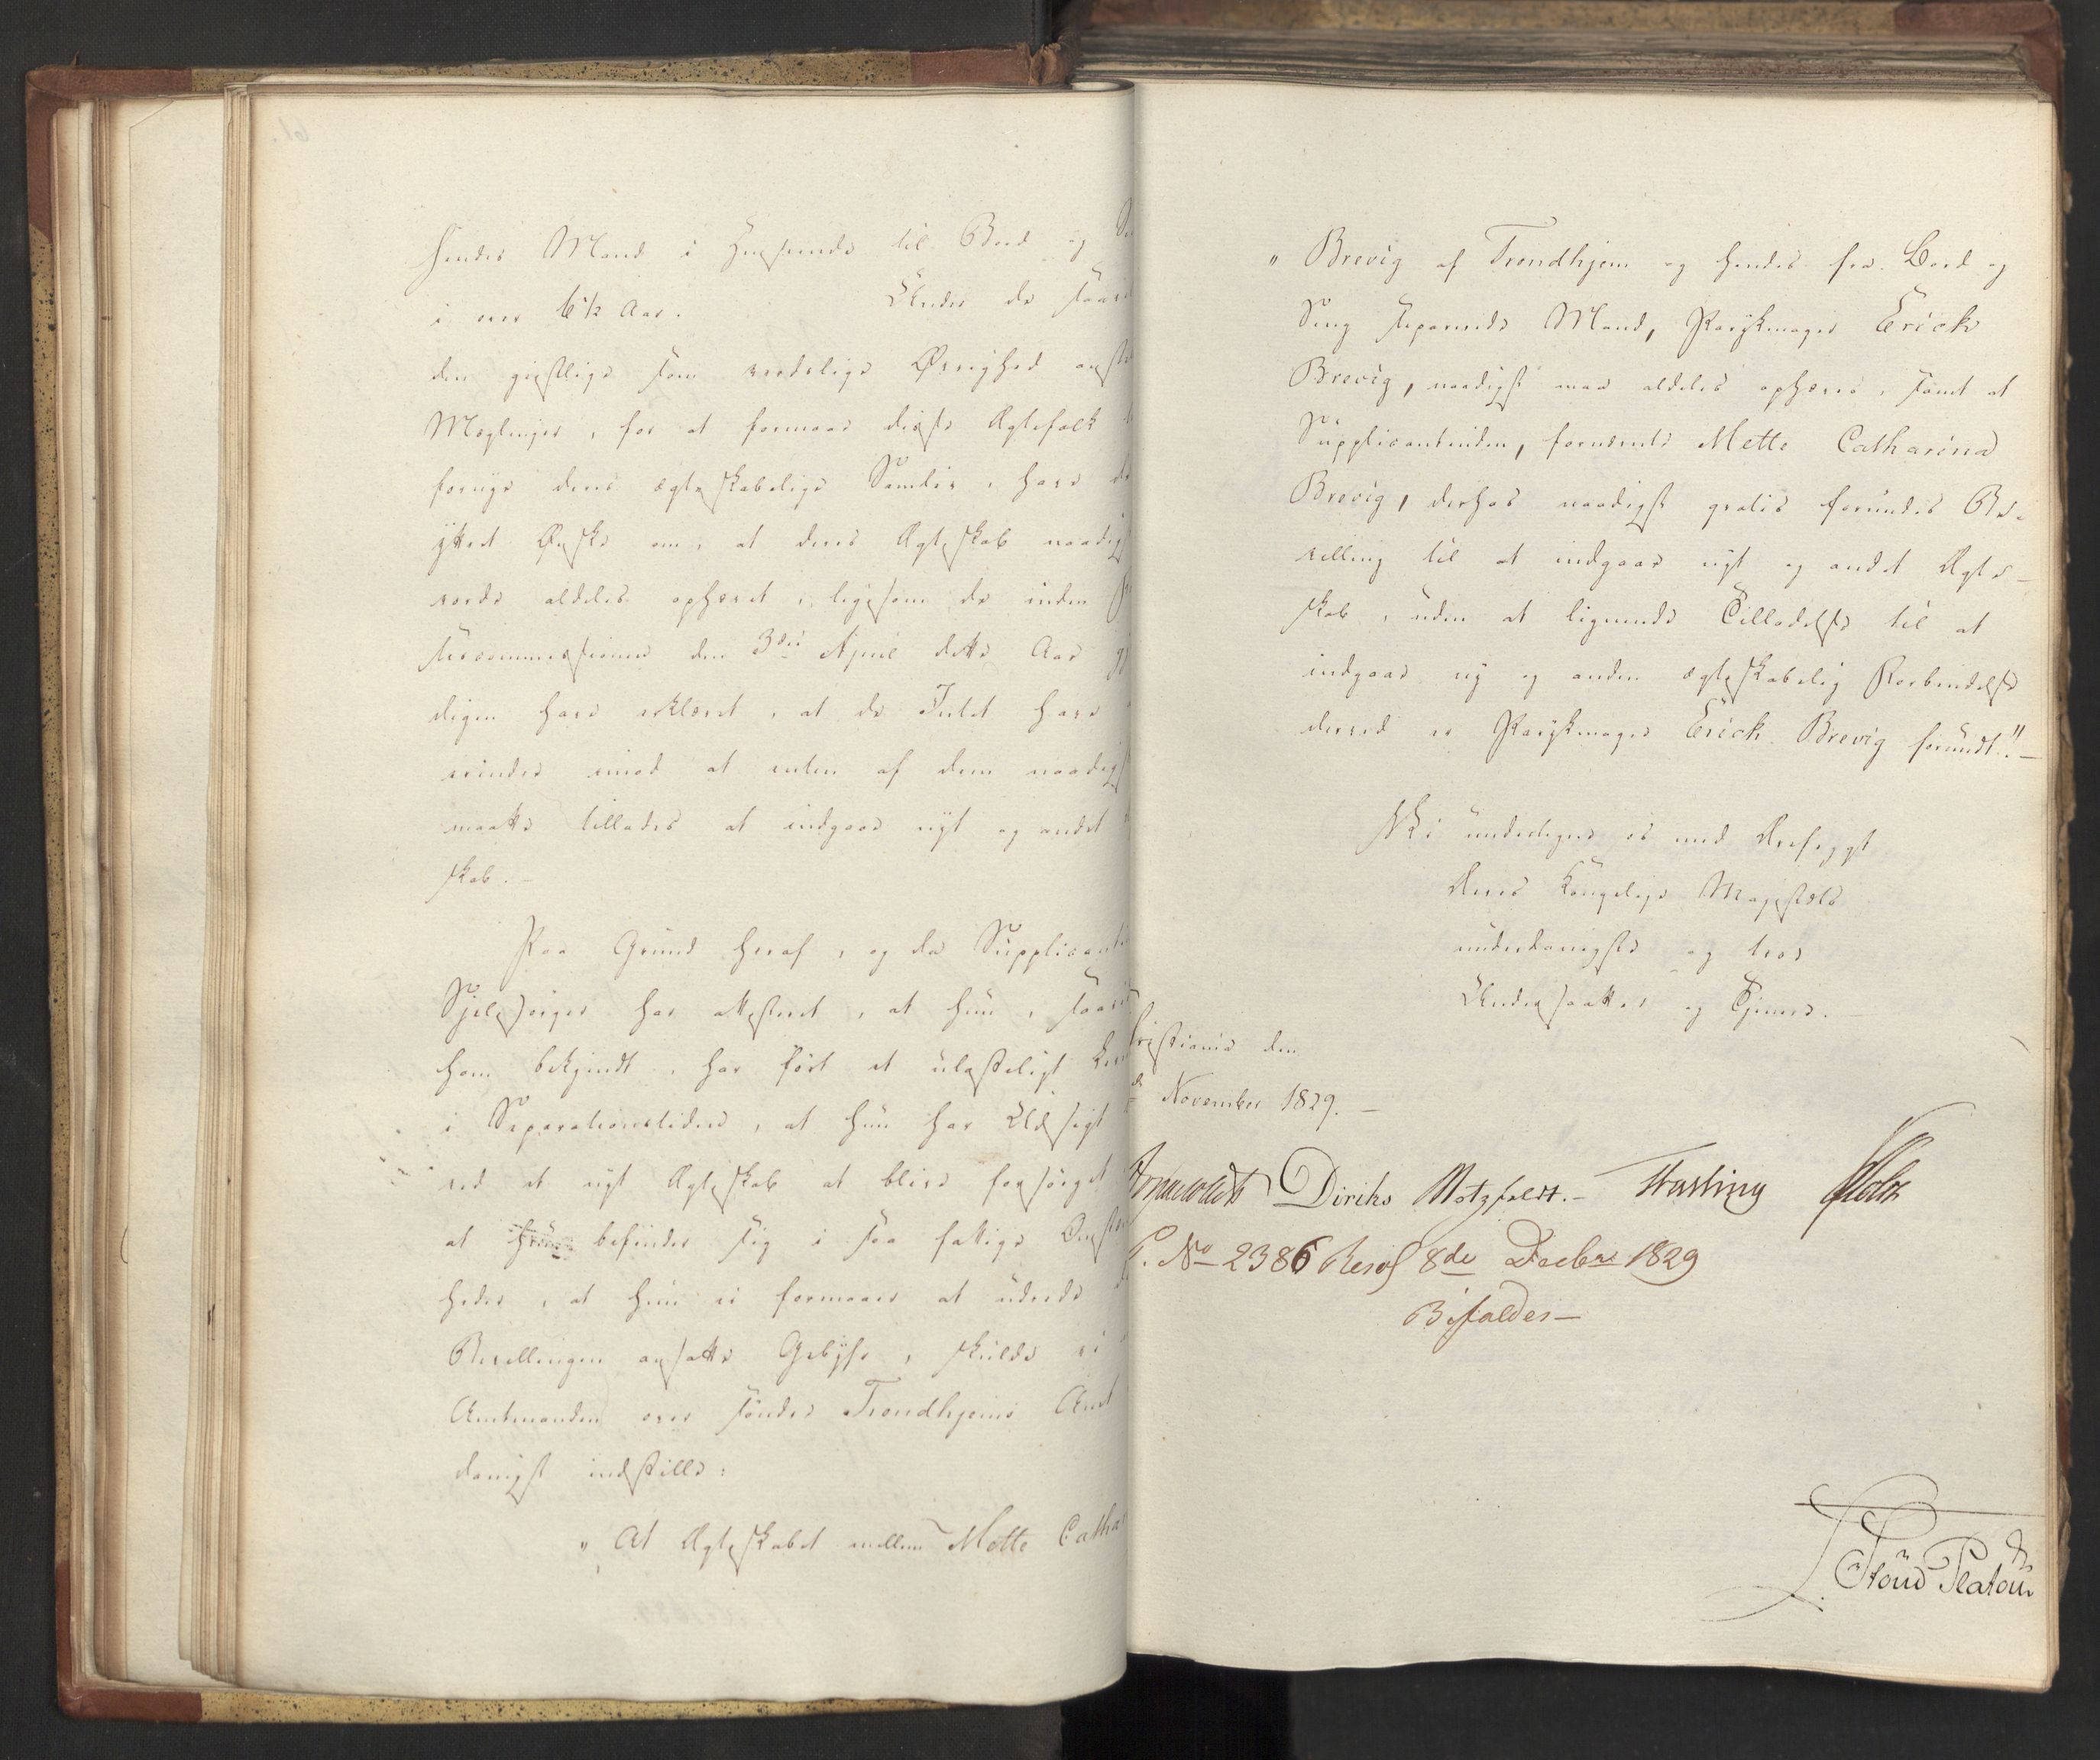 hendes Mand i Henseende til Bord og Se
i over 6 1/2 Aar. Under de saavel
den geistlige som verdslige Øvrighed anst
Mæglinger, for at formaae disse Ægtefolk
fornye deres ægteskabelige Samliv, have de
yttret Ønske om, at deres Ægteskab naadigst
vorde aldeles ophævet, ligesom de inden For
ligscommissionen den 3die April dette Aar
digen have erklæret, at de Intet have
erindre imod at enten af dem naadigst
maatte tillades at indgaae nyt og andet
skab. -
Paa Grund heraf, og da Supplicanti
Sjelesørger har attesteret, at hun, saavidt
ham bekjendt, har ført et ulasteligt Lev
i Separationstiden, at hun har Udsigt
ved et nyt Ægteskab at blive forsørget
at hun befinder sig i saa fattige Omstæn
heder, at hun ei formaaer at udrede d
Bevillingen ansatte Gebyhr, skulde vi
Amtmanden over søndre Trondhjems Amt
danigst indstille:
" At Ægteskabet mellem Mette Catha
" Brevig af Trondhjem og hendes fra Bord og
Seng separerede Mand, Parykmager Erick
Brevig, naadigst maa aldeles ophæves, samt at
Supplicantinden, fornævnte Mette Catharina
Brevig, derhos naadigst gratis forundes Be-
villing til at indgaae nyt og andet Ægte-
skab, uden at lignende Tilladelse til at
indgaae ny og anden ægteskabelig Forbindelse
derved er Parykmager Erick Brevig forundt." -
Vi undertegne os med Ærefrygt
Deres Kongelige Majestæts
underdanigste og troe
Undersaatter og Tjenere. -
ristiania den
November 1829. -
Diriks Motzfeldt. - Fasting Holst
P. No 2386 Resol 8de Decbr 1829
Bifaldes -
Stoud Platou